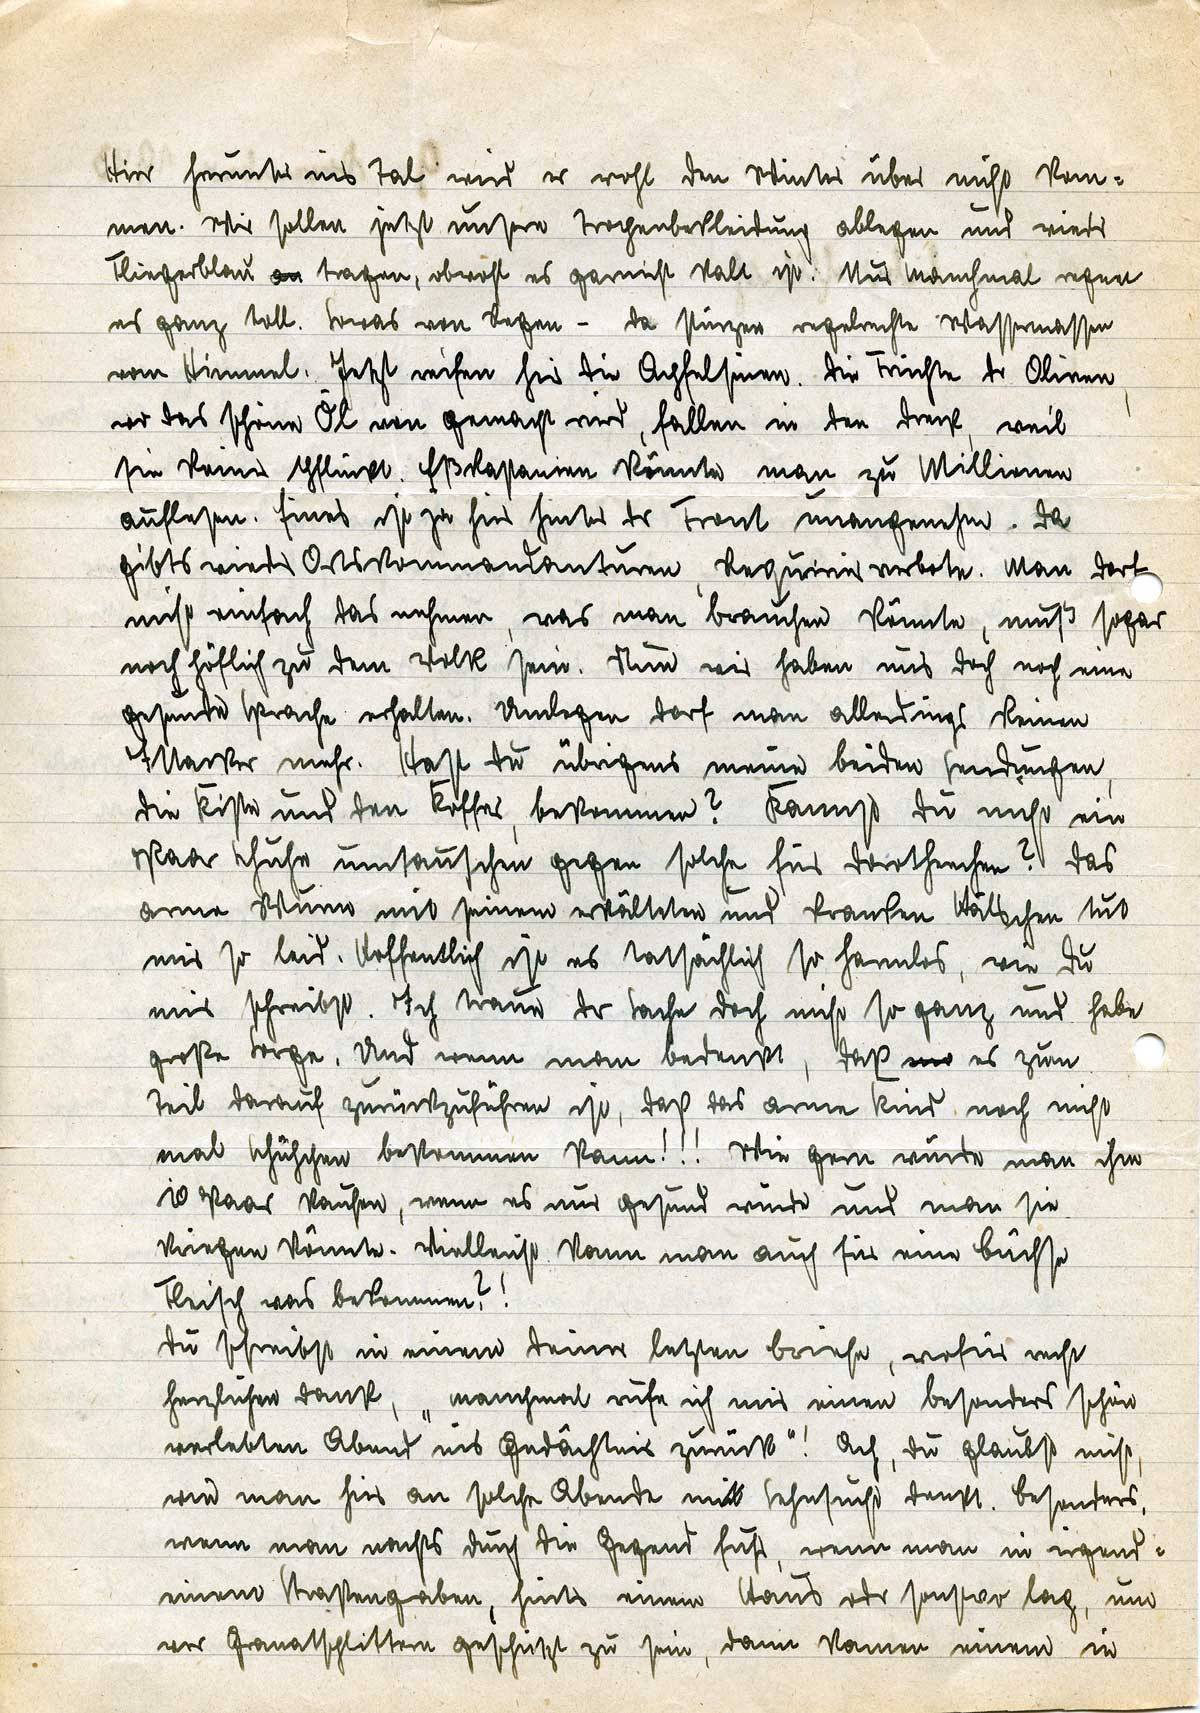 Hier herunter ins Tal wird er wohl den Winter über nicht kom=
men. Wir sollen jetzt unsere Tropenbekleidung ablegen und wieder
Fliegerblau tragen, obwohl es garnicht kalt ist. Nur manchmal regnet
es ganz toll. Sowas von Regen - da stürzen regelrechte Wassermassen
vom Himmel. Jetzt reifen hier die Apfelsinen. Die Früchte der Oliven,
wo das schöne Öl von gemacht wird, fallen in den Dreck, weil
sie keiner pflückt. Eßkastanien könnte man zu Millionen
auflesen. Eines ist ja hier hinter der Front unangenehm. Da
gibts wieder Ortskommandanturen, Requirierverbote. Man darf
nicht einfach das nehmen, was man brauchen könnte, muß sogar
noch höflich zu dem Volk sein. Nun wir haben uns doch noch eine
gesunde Sprache erhalten. Umlegen darf man allerdings keinen
Itaker mehr. Hast Du übrigens meine beiden Sendungen,
die Kiste und den Koffer, bekommen? Kannst Du nicht ein
Paar Schuhe umtauschen gegen solche für Dorotheechen? Das
arme Wurm mit seinem erkälteten und kranken Hälschen tut
mir so leid. Hoffentlich ist es tatsächlich so harmlos, wie Du
mir schreibst. Ich traue der Sache doch nicht so ganz und habe
große Sorge. Und wenn man bedenkt, daß es zum
Teil darauf zurückzuführen ist, daß das arme Kind noch nicht
mal Schühchen bekommen kann!!! Wie gern würde man ihm
10 Paar kaufen, wenn es nur gesund würde und man sie
kriegen könnte. Vielleicht kann man auch für eine Büchse
Fleisch was bekommen?!
Du schreibst in einem Deiner letzten Briefe, wofür recht
herzlichen Dank, „manchmal rufe ich mir einen besonders schön
verlebten Abend ins Gedächtnis zurück"! Ach, Du glaubst nicht,
wie man hier an solche Abende mit Sehnsucht denkt. Besonders,
wenn man nachts durch die Gegend fuhr, wenn man in irgend=
einem Straßengraben, hinter einem Haus oder sonstwo lag, um
vor Granatsplittern geschützt zu sein, dann kamen einem in